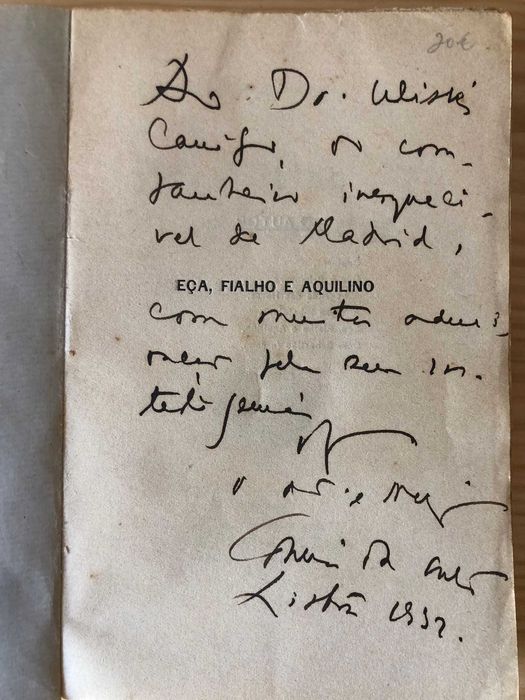 20€
Ao Dr. Ulisses
ao com-
panheiro inesqueci-
vel de Madrid,
EÇA, FIALHO E AQUILINO
com muita admi-
ração pela sua in-
teligencia
of
o
Costa
Lisboa 1932.